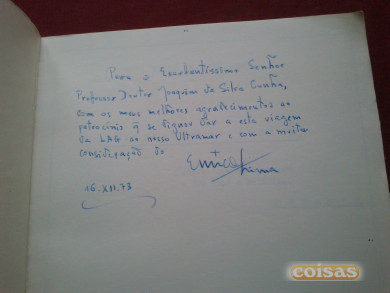 Para o Excelentíssimo Senhor
Professor Doutor Joaquim da Silva Cunha,
com os meus melhores agradecimentos ao
patrocínio q se dignou dar a esta viagem
da LAG ao nosso Ultramar e com a muita
consideração do
16.XII.73
coisas